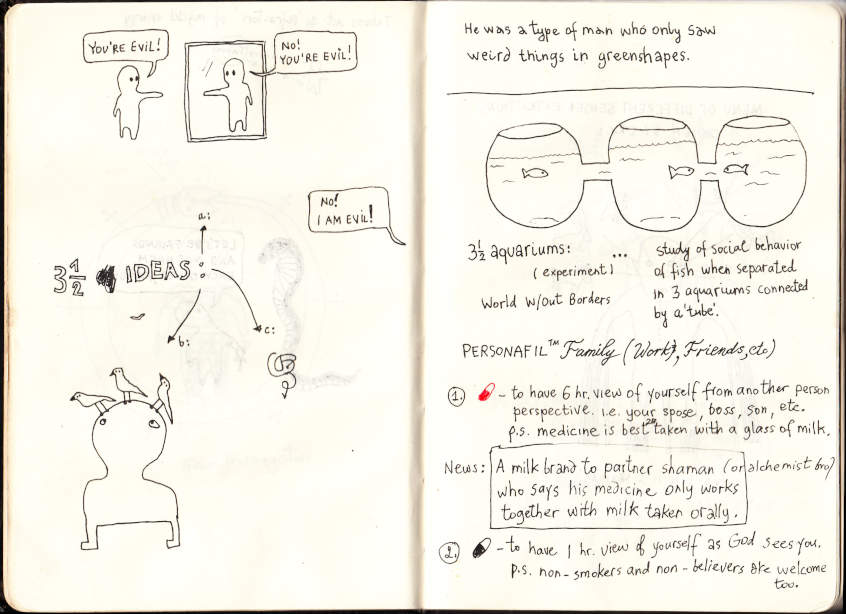 YOU'RE EVIL!
NO!
YOU'RE EVIL!
NO!
I AM EVIL!
a:
3 1/2 IDEAS:
b:
c:
He was a type of man who only saw
weird things in greenshapes.
3 1/2 aquariums:
(experiment)
World w/out Borders
...
study of social behavior
of fish when separated
in 3 aquariums connected
by a 'tube'.
PERSONAFIL™ Family (Work, Friends, etc)
1. - to have 6 hr. view of yourself from another person
perspective. i.e. your spose, boss, son, etc.
p.s. medicine is best taken with a glass of milk.
News: A milk brand to partner shaman (or alchemist bro)
who says his medicine only works
together with milk taken orally.
2. - to have 1 hr. view of yourself as God sees you.
p.s. non-smokers and non-believers are welcome
too.